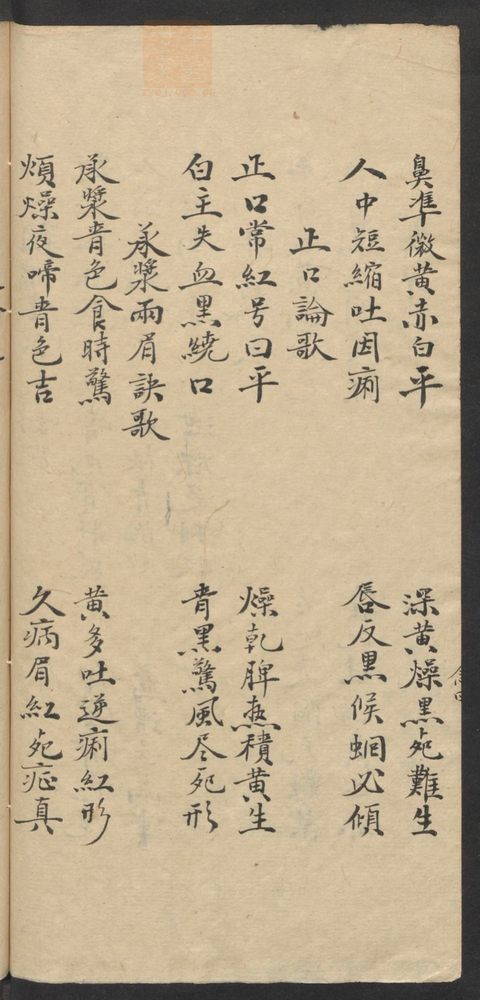 鼻準微黃赤白平 深黃燥黑死難生
人中短縮吐因痢 唇反黑候蛔必傾
正口論歌
正口常紅号曰平 燥乾脾熱積黃生
白主失血黑繞口 青黑驚風尽死形
承漿兩眉訣歌
承漿青色食時驚 黃多吐逆痢紅形
煩燥夜啼青色吉 久病眉紅死症真